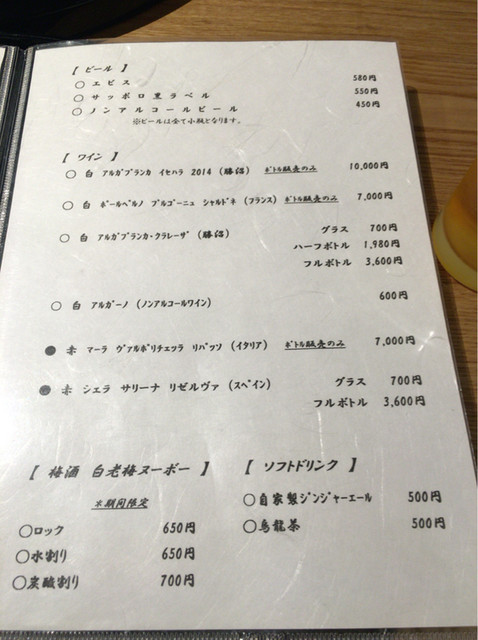 【 ビール 】
○ エビス 580円
○ サッポロ黒ラベル 550円
○ ノンアルコールビール 450円
※ビールは全て小瓶となります。
【 ワイン 】
○ 白 アルガブランカ イセハラ 2014 (勝沼) ボトル販売のみ 10,000円
○ 白 ポールペルノ ブルゴーニュ シャルドネ (フランス) ボトル販売のみ 7,000円
○ 白 アルガブランカ・クラレーザ (勝沼) グラス 700円
ハーフボトル 1,980円
フルボトル 3,600円
○ 白 アルガーノ (ノンアルコールワイン) 600円
● 赤 マーラ ヴァルポリチェッラ リパッソ (イタリア) ボトル販売のみ 7,000円
● 赤 シェラ サリーナ リゼルヴァ (スペイン) グラス 700円
フルボトル 3,600円
【 梅酒 白老梅ヌーボー 】
*期間限定
○ロック 650円
○水割り 650円
○炭酸割り 700円
【 ソフトドリンク 】
○自家製ジンジャーエール 500円
○烏龍茶 500円